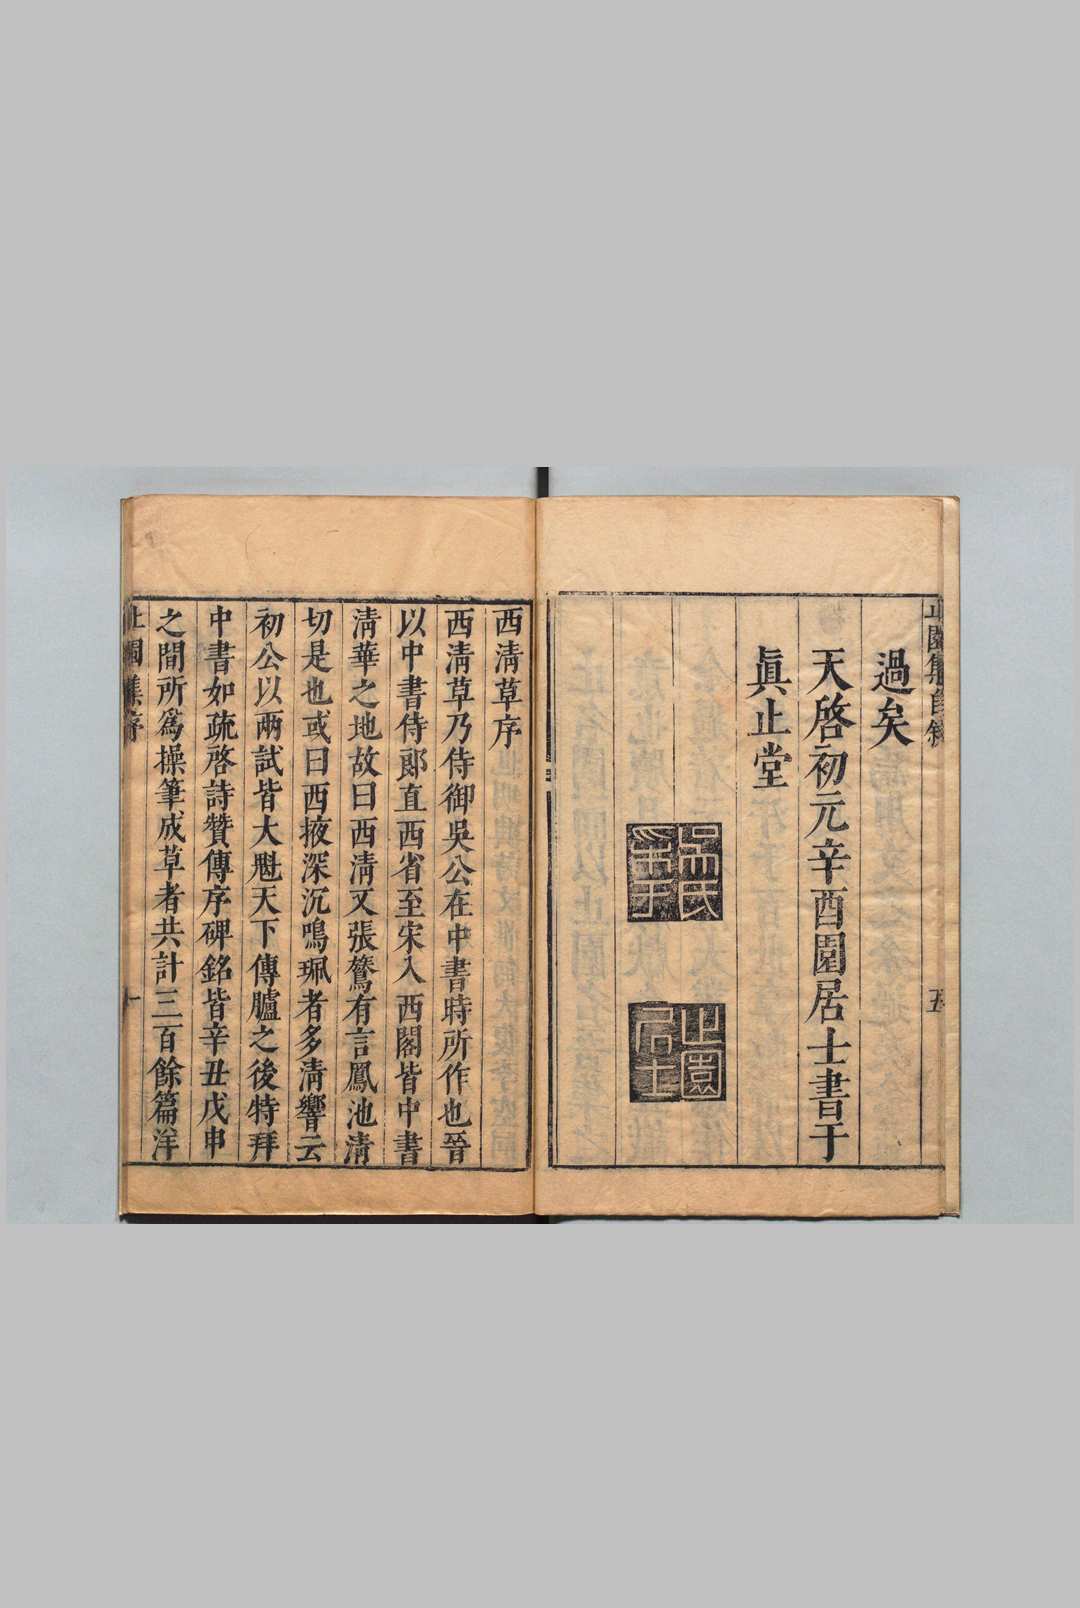 過矣
天啓初元辛酉園居士書于
眞止堂
吳氏
止園
居士
止園集自敘
五
西淸草序
西淸草乃侍御吳公在中書時所作也晉
以中書侍郞直西省至宋入西閣皆中書
淸華之地故曰西淸又張鷟有言鳳池淸
切是也或曰西掖深沉鳴珮者多淸響云
初公以兩試皆大魁天下傳臚之後特拜
中書如疏啓詩贊傳序碑銘皆辛丑戊申
之間所爲操筆成草者共計三百餘篇洋
止園集序
一